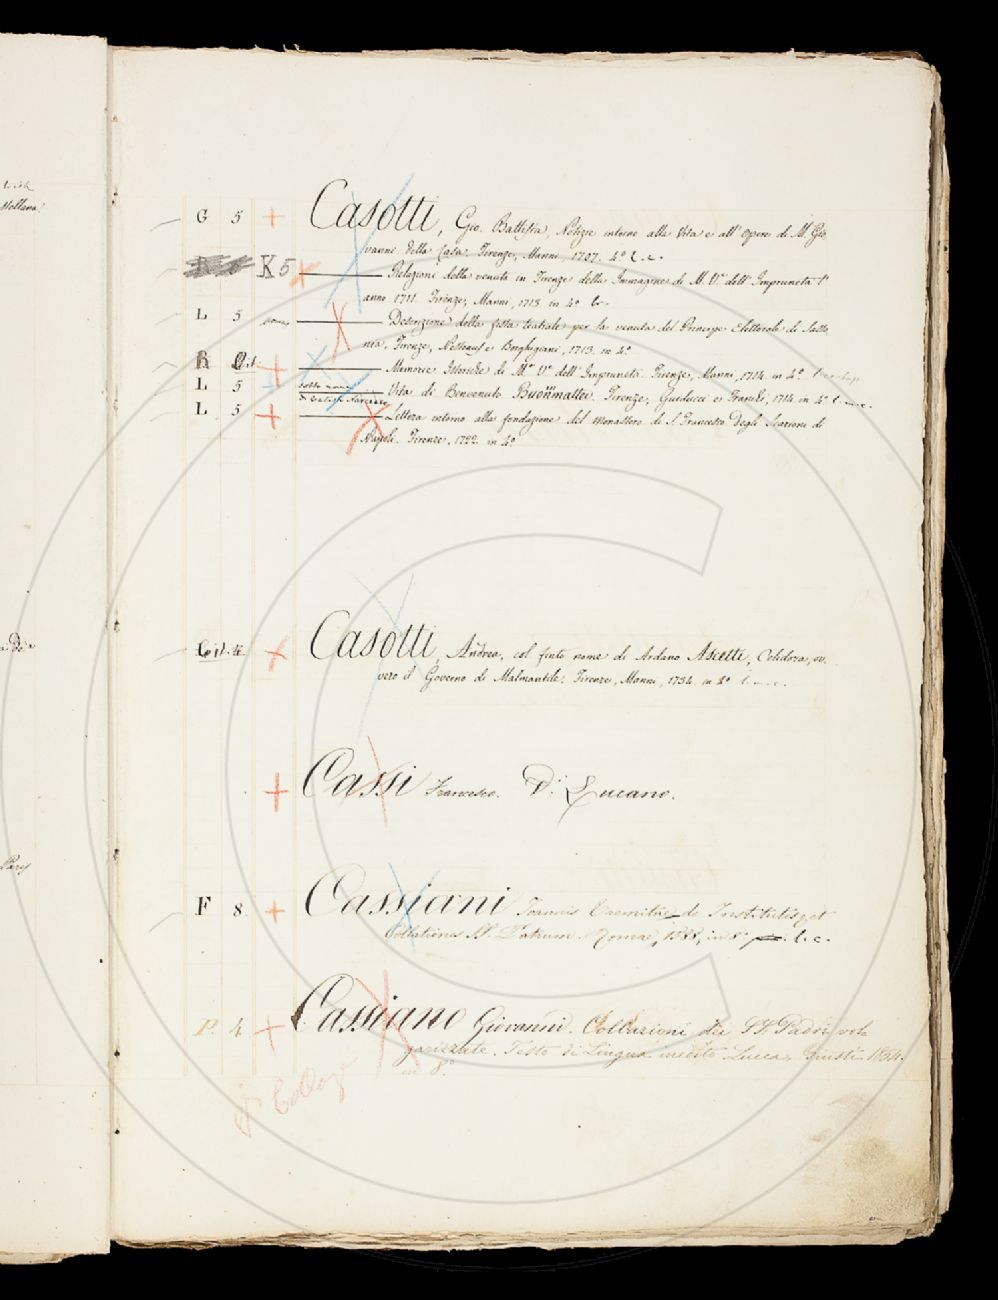 G 5 Casotti, Gio. Battista, Notizie intorno alla Vita e all' Opere di M. Gio
vanni della Casa. Firenze, Manni, 1707. 4º l. c.
K5 Relazioni della venuta in Firenze della Immagine di M. Vª dell' Impruneta l'
anno 1711. Firenze, Manni, 1713. in 4º
L 5 Descrizione della festa teatrale per la venuta del Principe Elettorale di Sasso
nia. Firenze, e Borghigiani, 1713. in 4º
Memorie Istoriche di Mª Vª dell' Impruneta. Firenze, Manni, 1714. in 4º
L 5 sotto nome Vita di Benvenuto Buonmattei. Firenze, Guiducci e Franchi, 1714. in 4º
di
L 5 Lettera intorno alla fondazione del Monastero di S. Francesco degli Scarioni di
Napoli. Firenze, 1722. in 4º
4 Casotti, Andrea, col finto nome di Ardano Ascetti, Celidora, ov
vero il Governo di Malmantile. Firenze, Manni, 1734. in 4º
Cassi Francesco. V. Lucano.
F 8. Cassiani Joannis Eremitae de Institutis, et
Collationes SS. Patrum. Romae, in 8º l. c.
P. 4 Cassiano Giovanni. Collazioni dei SS. Padri vol
garizzate. Testo di Lingua inedito Lucca, Giusti 1854.
in 8º